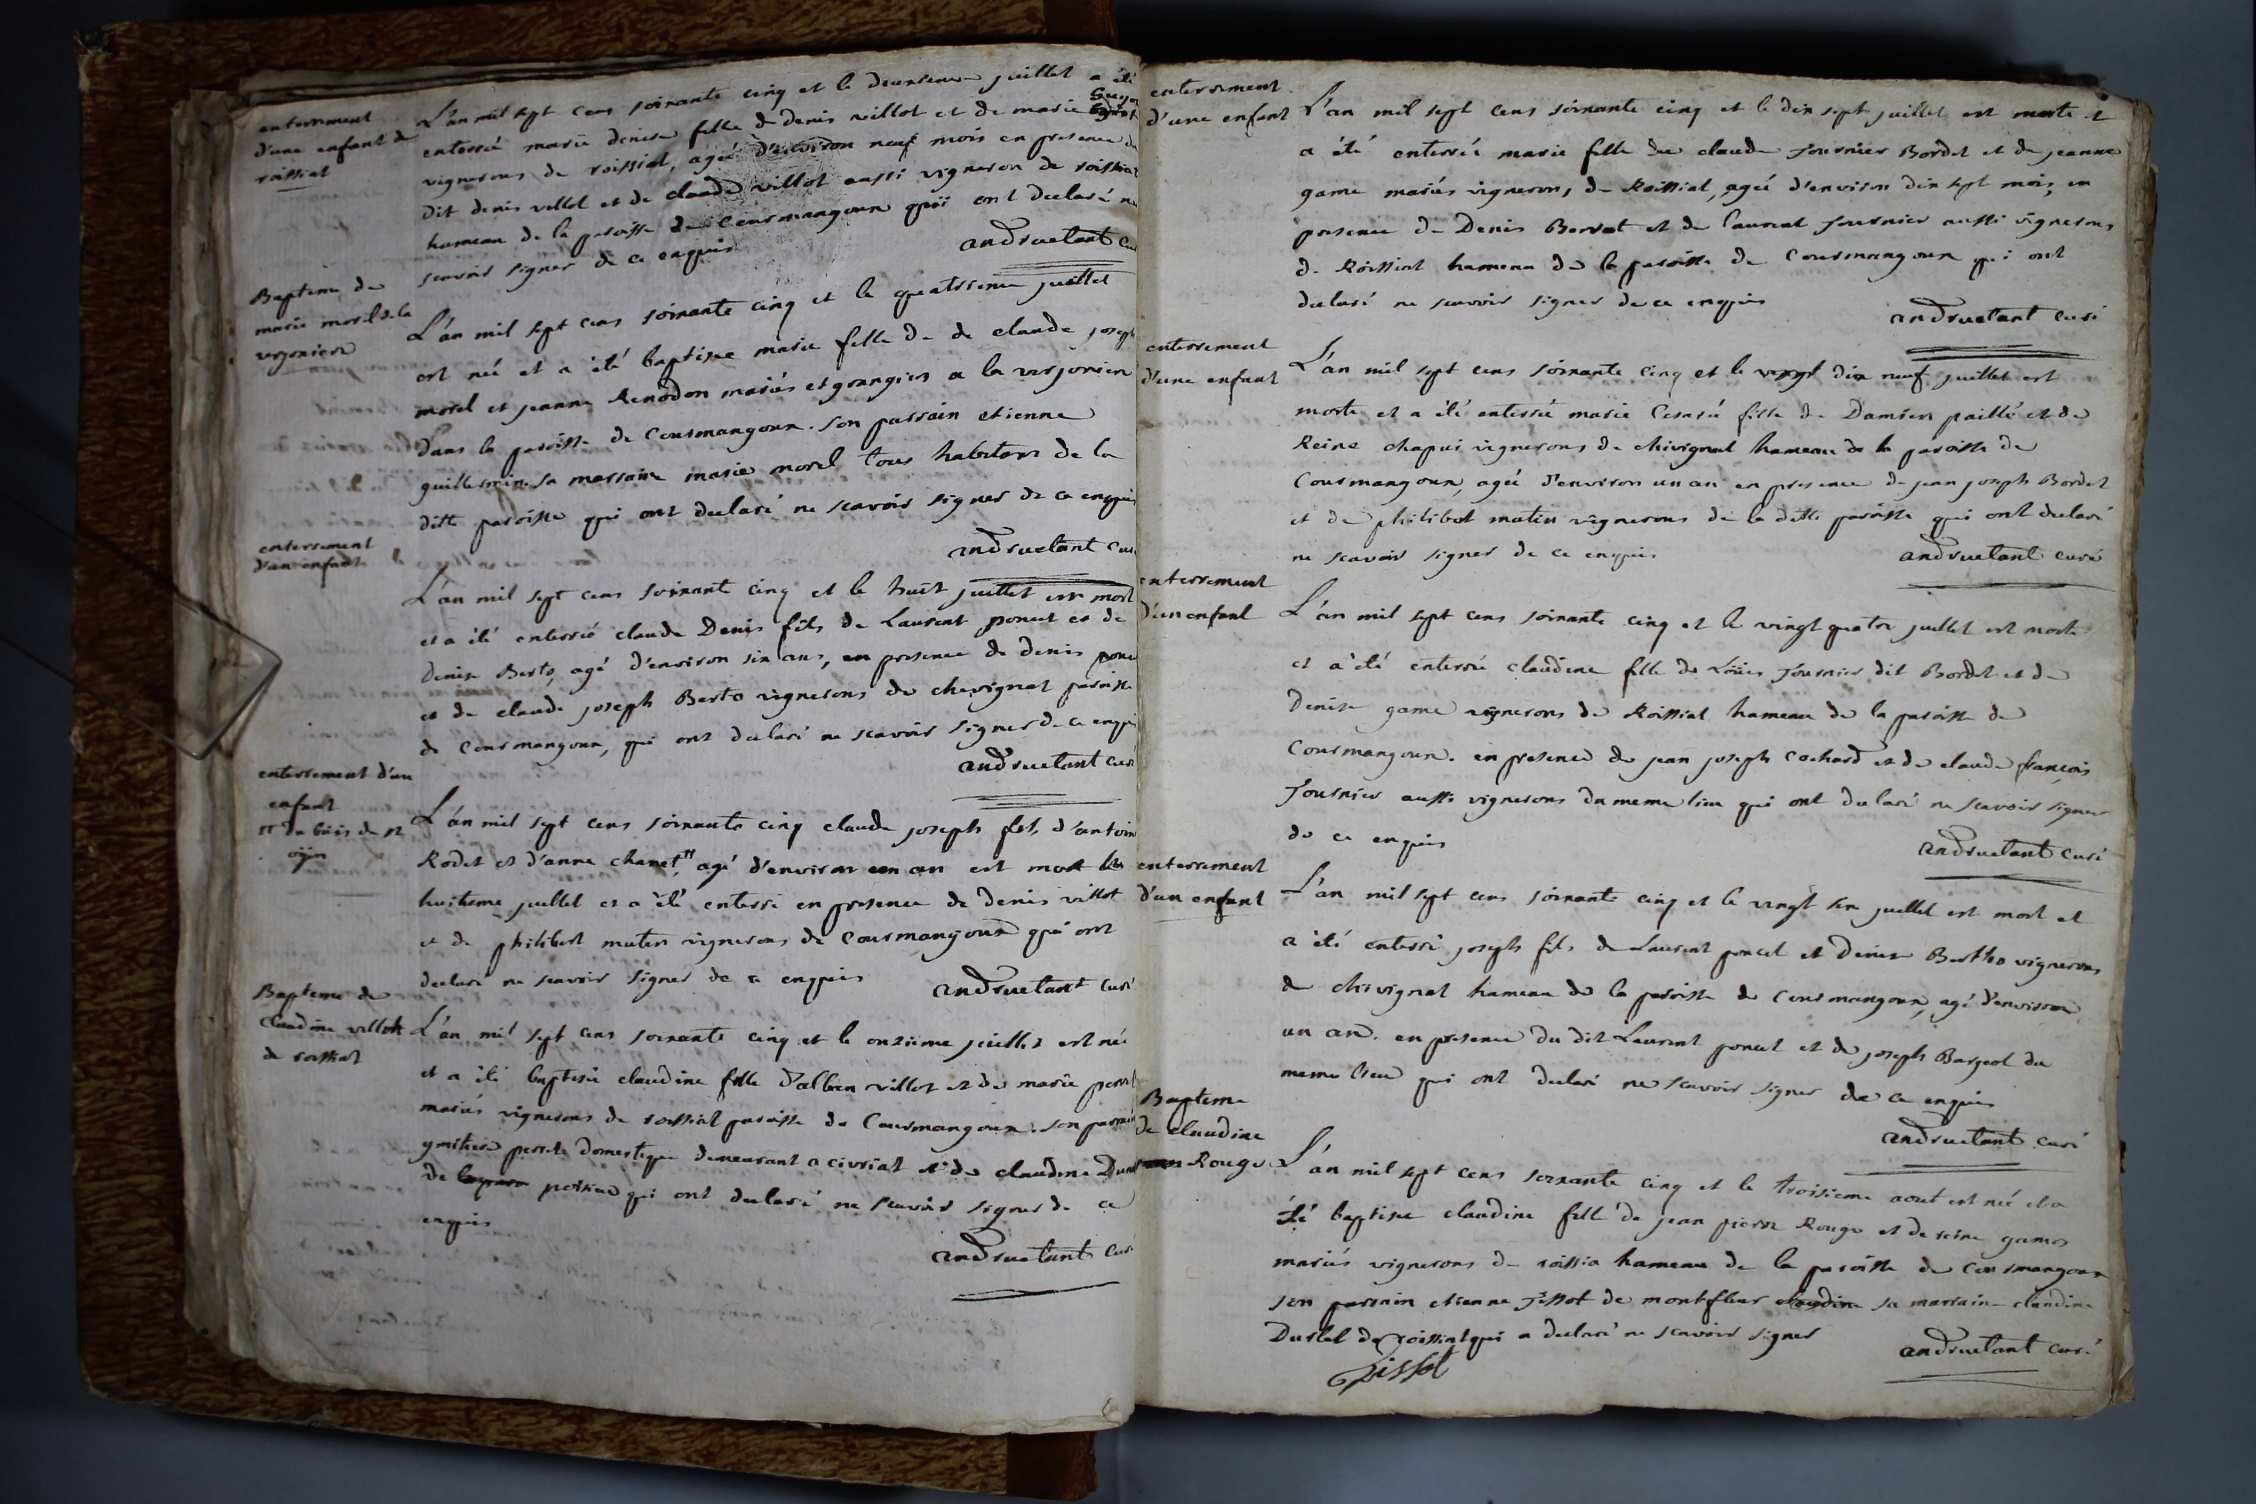 enterrement
d'une enfant de
roissiat
L'an mil sept cens soixante cinq et le deuxieme juillet a été
enterrée marie denise fille de denis villot et de marie
vignerons de roissiat, agée d'environ neuf mois en presence du
dit denis villot et de claude villot aussi vigneron de roissiat
hameau de la paroisse de Courmangoux qui ont declaré ne
scavoir signer de ce enquis
andruetant curé
Bapteme de
marie morel de la
verjoniere
L'an mil sept cens soixante cinq et le quatrieme juillet
est née et a été baptisée marie fille de de claude joseph
morel et jeanne Renodon mariés et grangiers a la verjoniere
dans la paroisse de Courmangoux. son parrain etienne
guillermin sa marraine marie morel tous habitans de la
ditte paroisse qui ont declaré ne scavoir signer de ce enquis
andruetant curé
enterrement
d'un enfant
L'an mil sept cens soixante cinq et le huit juillet est mort
et a été enterré claude Denis fils de Laurent poncet et de
denise Berto, agé d'environ six ans, en presence de denis ponce
et de claude joseph Berto vignerons de chevignat paroisse
de Courmangoux, qui ont declaré ne scavoir signer de ce enquis
andruetant curé
enterrement d'un
enfant
L'an mil sept cens soixante cinq claude joseph fils d'antoine
Rodet et d'anne chanet, agé d'environ un an est mort le
huitieme juillet et a été enterré en presence de denis villot
et de philibert mutin vignerons de Courmangoux qui ont
declaré ne scavoir signer de ce enquis
andruetant curé
Bapteme de
Claudine villot
de roissiat
L'an mil sept cens soixante cinq et le onzieme juillet est née
et a été baptisée claudine fille d'alban villot et de marie perret
mariés vignerons de roissiat paroisse de Courmangoux. son parrain
perret domestique demeurant a civriat et de claudine
de qui ont declaré ne scavoir signer de ce
enquis
andruetant curé
enterrement
d'une enfant
L'an mil sept cens soixante cinq et le dix sept juillet est morte et
a été enterrée marie fille de claude fournier Bordet et de jeanne
game mariés vignerons de Roissiat, agée d'environ dix sept mois, en
presence de Denis et de laurent fournier aussi vignerons
de Roissiat hameau de la paroisse de Courmangoux qui ont
declaré ne scavoir signer de ce enquis
andruetant curé
enterrement
d'une enfant
L'an mil sept cens soixante cinq et le vingt dix neuf juillet est
morte et a été enterrée marie Cesarée fille de Damien paillé et de
Reine chapui vignerons de chivignat hameau de la paroisse de
Courmangoux, agée d'environ un an en presence de jean joseph Bordet
et de philibet mutin vignerons de la ditte paroisse qui ont declaré
ne scavoir signer de ce enquis
andruetant curé
enterrement
d'un enfant
L'an mil sept cens soixante cinq et le vingt quatre juillet est morte
et a été enterrée claudine fille de Loüis fournier dit Bordet et de
Denise game vignerons de Roissiat hameau de la paroisse de
Courmangoux. en presence de jean joseph Cochard et de claude françois
fournier aussi vignerons du meme lieu qui ont declaré ne scavoir signer
de ce enquis
andruetant curé
enterrement
d'un enfant
L'an mil sept cens soixante cinq et le vingt six juillet est mort et
a été enterré joseph fils de Laurent poncet et Denise Bertho vignerons
de chivignat hameau de la paroisse de Courmangoux, agé d'environ
un an. en presence du dit Laurent poncet et de joseph Bargeot du
meme lieu qui ont declaré ne scavoir signer de ce enquis
andruetant curé
Bapteme
de claudine
Rouge
L'an mil sept cens soixante cinq et le troisieme aout est née et a
été baptisée claudine fille de jean pierre Rouge et de reine gamos
mariés vignerons de roissia hameau de la paroisse de Courmangoux
son parrain etienne fissot de montfleur claudine sa marraine claudine
Durlet de roissiat qui a declaré ne scavoir signer
andruetant curé
fissot